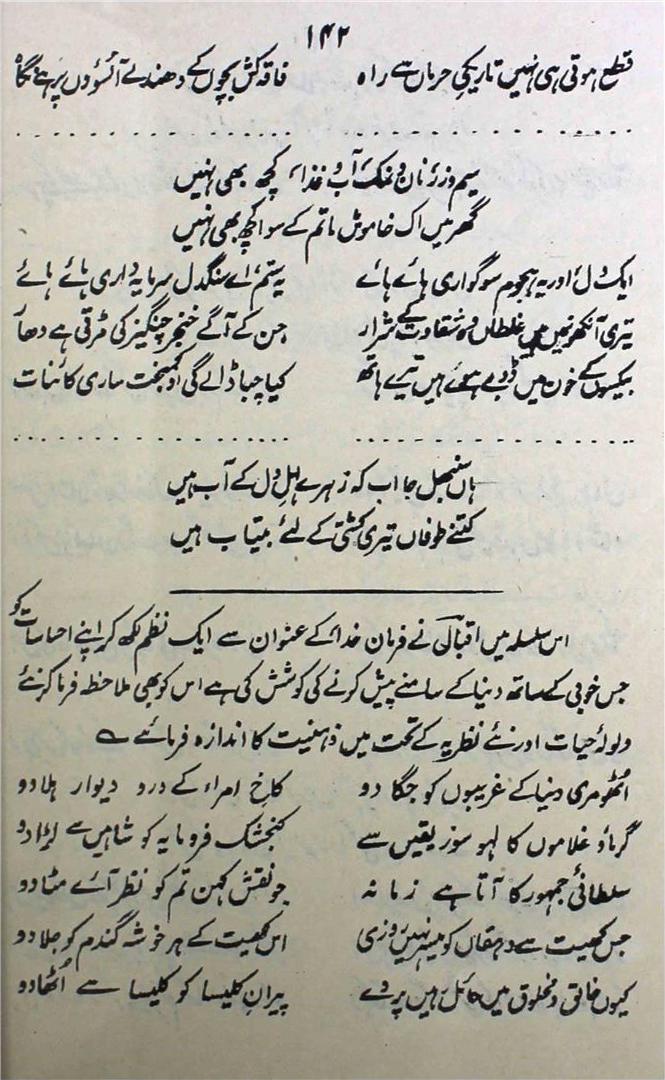 ۱۴۲
قطع ہوتی ہی نہیں تاریکیِ حرماں سے راہ فاقہ کش بچوں کے دھندلے آنسوؤں پر ہے نگاہ
سیم و زر، نان و نمک، آب و غذا، کچھ بھی نہیں
گھر میں اک خاموش ماتم کے سوا کچھ بھی نہیں
ایک دل، اور یہ ہجوم سوگواری ہائے ہائے یہ ستم، اے سنگدل سرمایہ داری ہائے ہائے
تیری آنکھوں میں غلطاں وہ شقاوت کے شرار جن کے آگے خنجر چنگیز کی مڑتی ہے دھار
بیکسوں کے خون میں ڈوبے ہوئے ہیں تیرے ہاتھ کیا چبا ڈالے گی او کمبخت ساری کائنات
ہاں سنبھل جا اب کہ زہرے اہل دل کے آب ہیں
کتنے طوفاں تیری کشتی کے لئے بیتاب ہیں
اس سلسلہ میں اقبالؔ نے فرمان خدا، کے عنوان سے ایک نظم لکھ کر اپنے احساسات کو
جس خوبی کے ساتھ دنیا کے سامنے پیش کرنے کی کوشش کی ہے اس کو بھی ملاحظہ فرما کر نئے
ولولۂ حیات اور نئے نظریہ کے تحت میں ذہنیت کا اندازہ فرمائے ؎
اٹھو مری دنیا کے غریبوں کو جگا دو کاخ امراء کے در و دیوار ہلا دو
گرماؤ غلاموں کا لہو سوز یقیں سے کنجشک فرومایہ کو شاہیں سے لڑا دو
سلطانیٔ جمہور کا آتا ہے زمانہ جو نقش کہن تم کو نظر آئے مٹا دو
جس کھیت سے دہقاں کو میسر نہیں روزی اس کھیت کے ہر خوشہ گندم کو جلا دو
کیوں خالق و مخلوق میں حائل رہیں پردے پیران کلیسا کو کلیسا سے اُٹھا دو